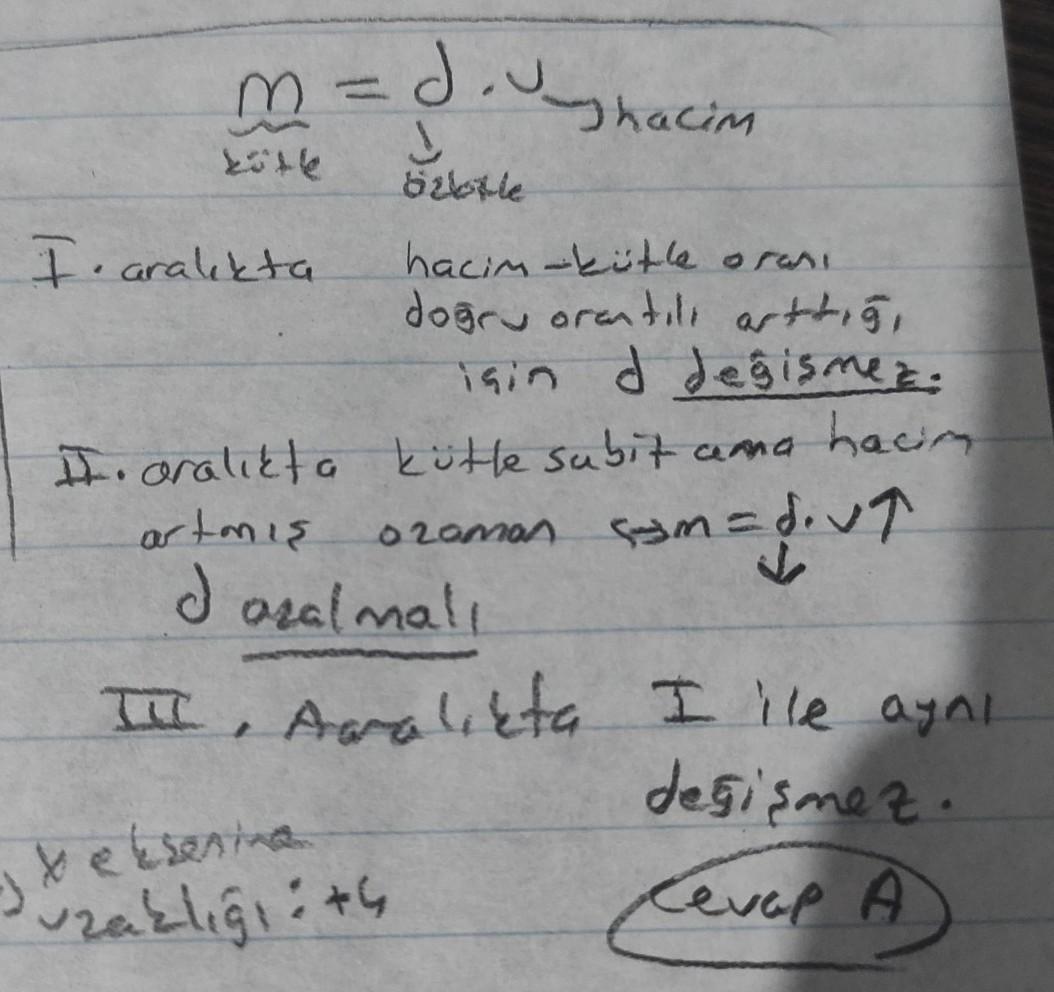 m = d.v → hacim
kütle özkütle
I. aralıkta hacim-kütle oranı
doğru orantılı arttığı
için d değişmez.
II. aralıkta kütle sabit ama hacim
artmış ozaman ↔ m = d.v↑
↓
d azalmalı
III. Aaralıkta I ile aynı
değişmez.
x eksenine
uzaklığı: +4
Cevap A